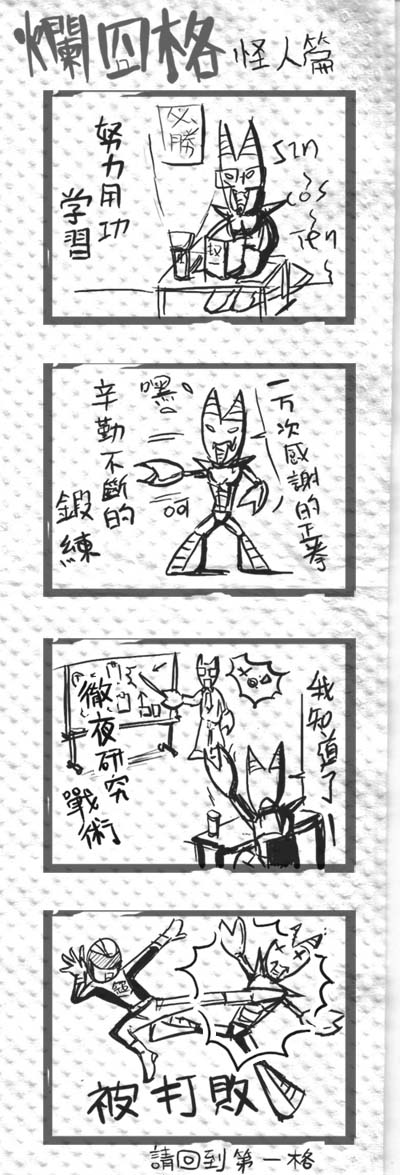 爛四格 怪人篇
必勝
努力用功
学習
sin
cos
Tan
一万次感謝的正拳
嘿。
呵
辛勤不斷的
鍛練
我知道了!
徹夜研究
戰術
被打敗
請回到第一格